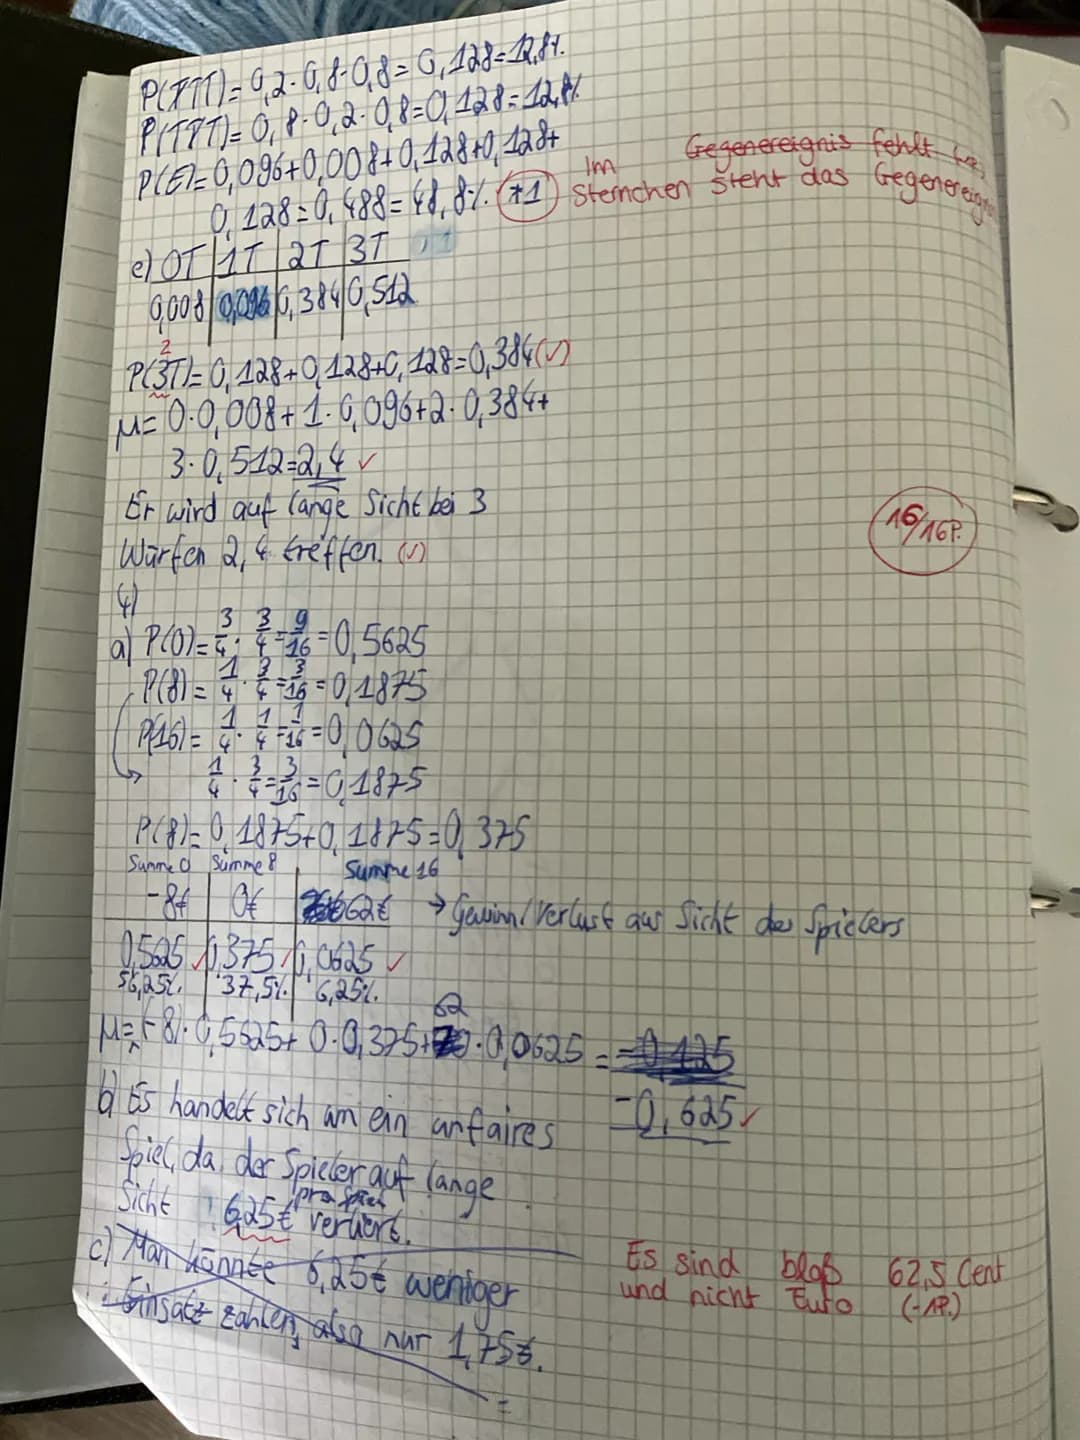 P(PTT)= 0,2·0,8·0,8= 0,128=12,8%.
P(TPT)= 0,8·0,2·0,8=0,128=12,8%
P(E)=0,096+0,008+0,128+0,128+
0,128=0,488=48,8%. *1
Gegenereignis fehlt
Im
Sternchen steht das Gegenereignis
e) 0T 1T 2T 3T
0,008 0,096 0,384 0,512
2
P(3T)=0,128+0,128+0,128=0,384(✓)
μ= 0·0,008+1·0,096+2·0,384+
3·0,512=2,4 ✓
Er wird auf lange Sicht bei 3
Würfen 2,4 treffen. (✓)
16/16P.
4)
a) P(0)= 3/4 · 3/4 = 9/16 =0,5625
P(8)= 1/4 · 3/4 = 3/16 =0,1875
P(16)= 1/4 · 1/4 = 1/16 =0,0625
1/4 · 3/4 = 3/16 =0,1875
P(8)= 0,1875+0,1875=0,375
Summe 0 Summe 8 Summe 16
-8€ 0€ 62€ → Gewinn/Verlust aus Sicht des Spielers
0,5625 ✓ 0,375 ✓ 0,0625 ✓
56,25%. 37,5%. 6,25%.
62
μ=(-8)·0,5625+0·0,375+ ·0,0625 = -0,125
-0,625 ✓
b) Es handelt sich um ein unfaires
Spiel, da der Spieler auf lange
Sicht 6,25€ pro Spiel verliert.
c) Man könnte 6,25€ weniger
Einsatz zahlen, also nur 1,75€.
Es sind bloß 62,5 Cent
und nicht Euro (-1P.)